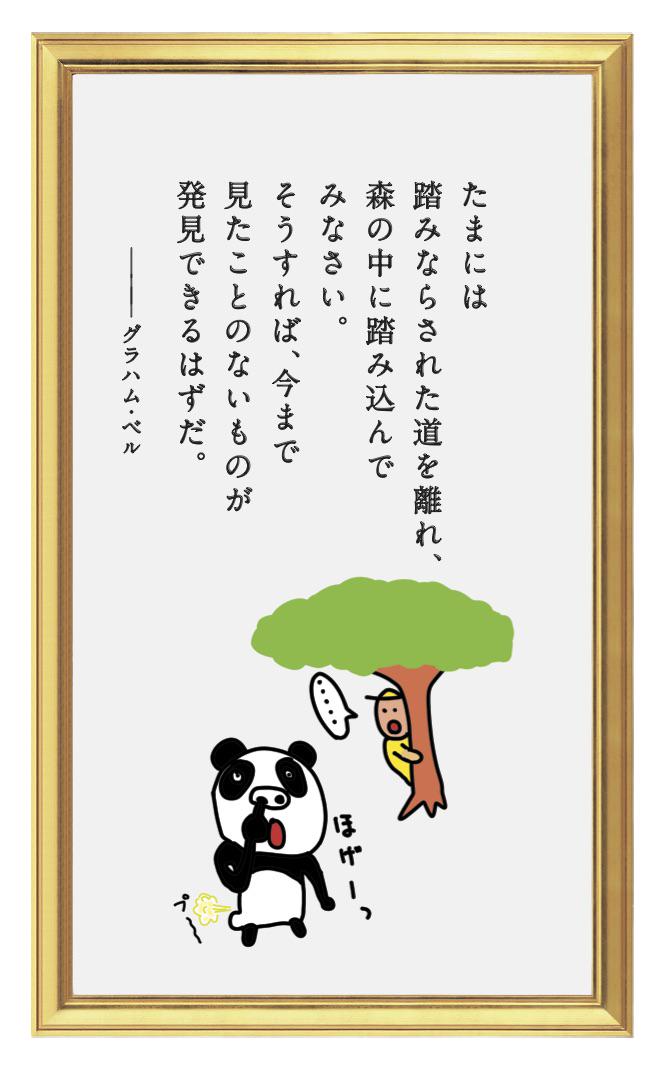 たまには
踏みならされた道を離れ、
森の中に踏み込んで
みなさい。
そうすれば、今まで
見たことのないものが
発見できるはずだ。
――グラハム・ベル
……
ほげーっ
プ～